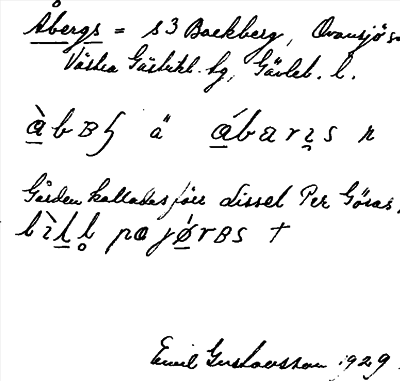 Åbergs = S3 Backberg, Ovansjö sn
Västra Gästrikl. hg, Gävleb. l.
àbBh ä ábarıs n
Gården kallades förr dissel Per Göras,
bìll pajørBs †
Emil Gustavsson 1929.